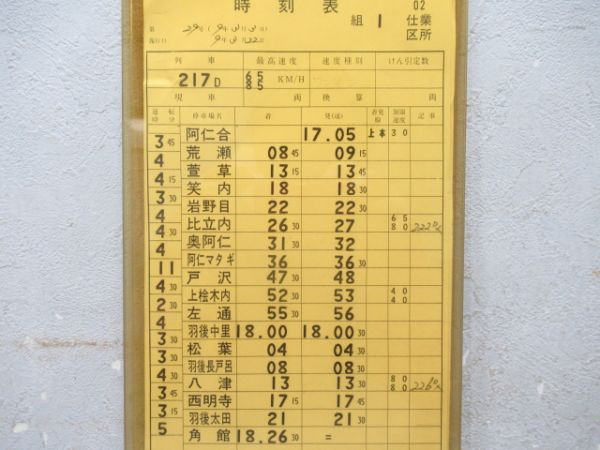 時刻表
02
組 1 仕業
区所
列車 最高速度 速度種別 けん引定数
217D 65 85 KM/H
現車 両 換算 両
運転時分 停車場名 着 発(通) 着発線 制限速度 記事
阿仁合 17.05 上本 30
3 45
荒瀬 08 45 09 15
4
萱草 13 15 13 45
4 15
笑内 18 18 30
4
岩野目 22 22 30
4
比立内 26 30 27 65 80 222D
4 30
奥阿仁 31 30 32
4
阿仁マタギ 36 36 30
11
戸沢 47 30 48
4 30
上桧木内 52 30 53 40 40
2 30
左通 55 30 56
4
羽後中里 18.00 18.00 30
3 30
松葉 04 04 30
3 30
羽後長戸呂 08 08 30
4 30
八津 13 13 30 80 80 226D
3 45
西明寺 17 15 17 45
3 15
羽後太田 21 21 30
5
角館 18.26 30 =